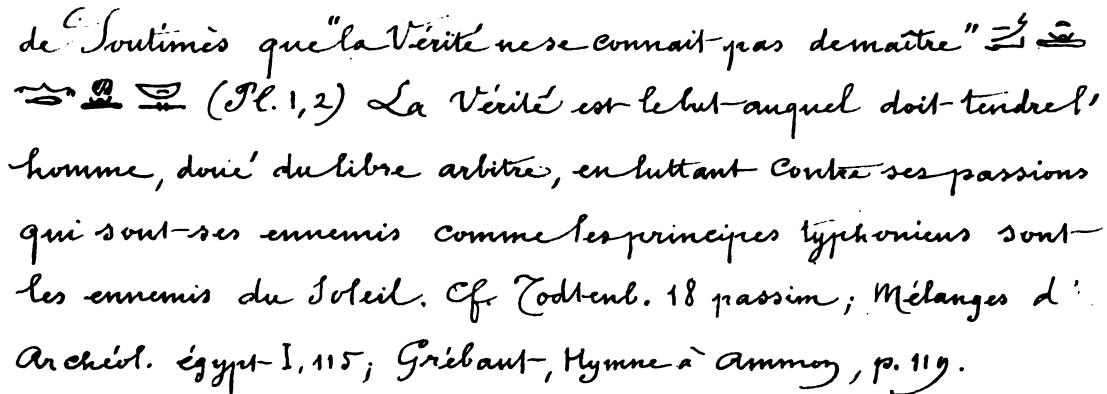 de Soutimès que "la Vérité ne se connait pas de maître"
(Pl. 1, 2) La Vérité est le but auquel doit tendre l'
homme, doué du libre arbitre, en luttant contre ses passions
qui sont ses ennemis comme les principes typhoniens sont
les ennemis du Soleil. Cf. Todtenb. 18 passim; Mélanges d'
Archéol. égypt I, 115; Grébaut, Hymne à Ammon, p. 119.